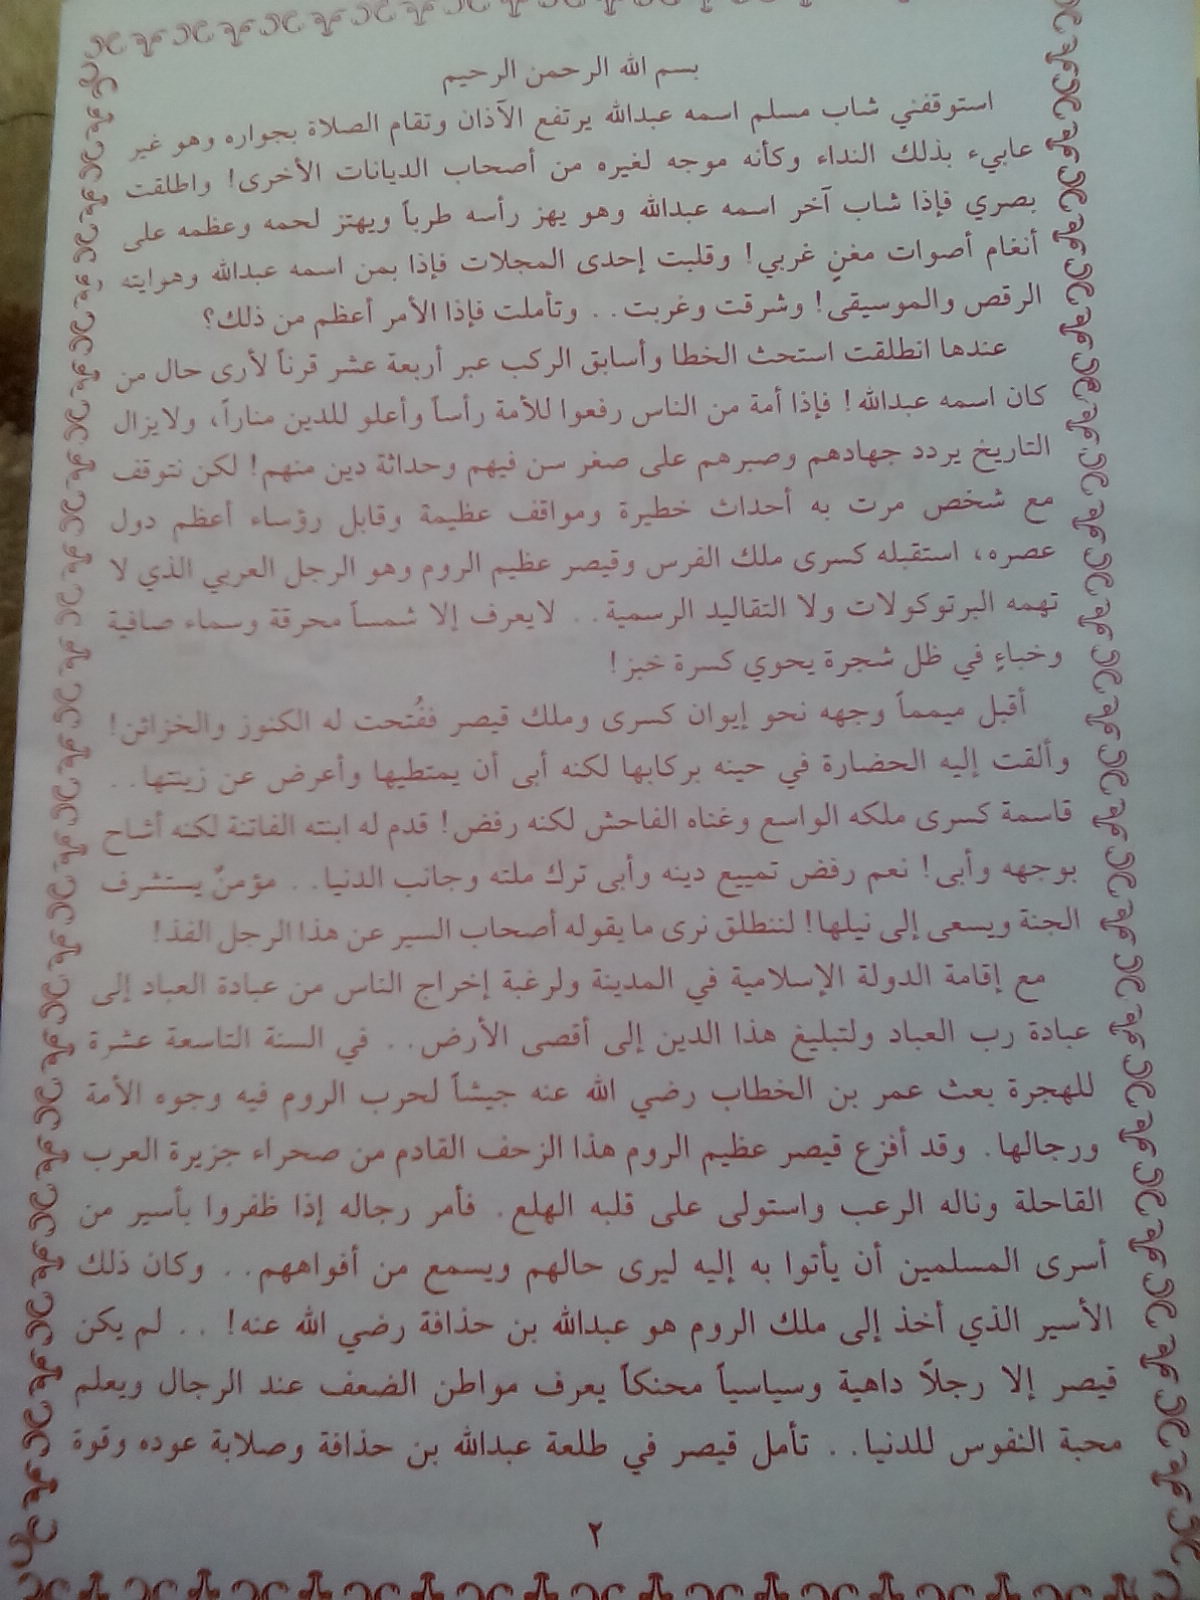 بسم الله الرحمن الرحيم
استوقفني شاب مسلم اسمه عبدالله يرتفع الآذان وتقام الصلاة بجواره وهو غير
عابيء بذلك النداء وكأنه موجه لغيره من أصحاب الديانات الأخرى! واطلقت
بصري فإذا شاب آخر اسمه عبدالله وهو يهز رأسه طرباً ويهتز لحمه وعظمه على
أنغام أصوات مغنٍ غربي! وقلبت إحدى المجلات فإذا بمن اسمه عبدالله وهوايته
الرقص والموسيقى! وشرقت وغربت.. وتأملت فإذا الأمر أعظم من ذلك؟
عندها انطلقت استحث الخطا وأسابق الركب عبر أربعة عشر قرناً لأرى حال من
كان اسمه عبدالله! فإذا أمة من الناس رفعوا للأمة رأساً وأعلو للدين مناراً، ولايزال
التاريخ يردد جهادهم وصبرهم على صغر سن فيهم وحداثة دين منهم! لكن نتوقف
مع شخص مرت به أحداث خطيرة ومواقف عظيمة وقابل رؤساء أعظم دول
عصره، استقبله كسرى ملك الفرس وقيصر عظيم الروم وهو الرجل العربي الذي لا
تهمه البرتوكولات ولا التقاليد الرسمية.. لايعرف إلا شمساً محرقة وسماء صافية
وخباءٍ في ظل شجرة يحوي كسرة خبز!
أقبل ميمماً وجهه نحو إيوان كسرى وملك قيصر ففُتحت له الكنوز والخزائن!
وألقت إليه الحضارة في حينه بركابها لكنه أبى أن يمتطيها وأعرض عن زينتها..
قاسمة كسرى ملكه الواسع وغناه الفاحش لكنه رفض! قدم له ابنته الفاتنة لكنه أشاح
بوجهه وأبى! نعم رفض تمييع دينه وأبى ترك ملته وجانب الدنيا.. مؤمنٌ يستشرف
الجنة ويسعى إلى نيلها! لننطلق نرى مايقوله أصحاب السير عن هذا الرجل الفذ!
مع إقامة الدولة الإسلامية في المدينة ولرغبة إخراج الناس من عبادة العباد إلى
عبادة رب العباد ولتبليغ هذا الدين إلى أقصى الأرض.. في السنة التاسعة عشرة
للهجرة بعث عمر بن الخطاب رضي الله عنه جيشاً لحرب الروم فيه وجوه الأمة
ورجالها. وقد أفزع قيصر عظيم الروم هذا الزحف القادم من صحراء جزيرة العرب
القاحلة وناله الرعب واستولى على قلبه الهلع. فأمر رجاله إذا ظفروا بأسير من
أسرى المسلمين أن يأتوا به إليه ليرى حالهم ويسمع من أفواههم.. وكان ذلك
الأسير الذي أخذ إلى ملك الروم هو عبدالله بن حذافة رضي الله عنه!.. لم يكن
قيصر إلا رجلاً داهية وسياسياً محنكاً يعرف مواطن الضعف عند الرجال ويعلم
محبة النفوس للدنيا.. تأمل قيصر في طلعة عبدالله بن حذافة وصلابة عوده وقوة
٢